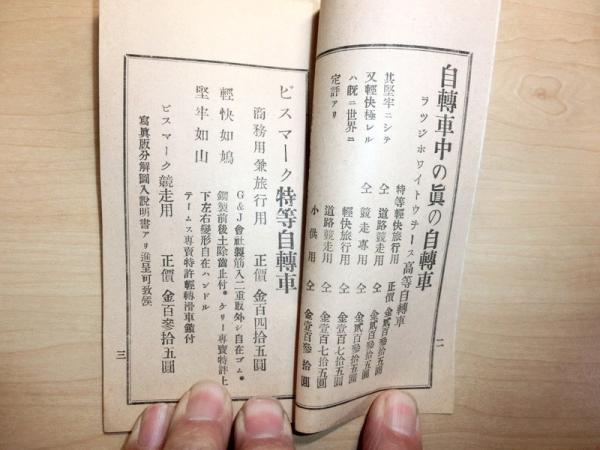 自轉車中の眞の自轉車
ラツジホワイトウオース高等自轉車
其堅牢ニシテ
又輕快極レル
ハ既ニ世界ニ
定評アリ
特等輕快旅行用 正價 金貳百參拾五圓
仝 道路競走用 仝 金貳百參拾五圓
仝 競走專用 仝 金貳百參拾五圓
輕快旅行用 仝 金壹百七拾五圓
道路競走用 仝 金壹百七拾五圓
小供用 仝 金壹百參拾圓
二
ビスマーク特等自轉車
商務用兼旅行用 正價 金百四拾五圓
輕快如鳩
堅牢如山
G&J會社製筋入二重取外シ自在ゴム
鋼製前後土除齒止付 ケリー專賣特許上
下左右變形自在ハンドル
テームス專賣特許輕轉滑車鎖付
ビスマーク競走用 正價 金百參拾五圓
寫眞版分解圖入說明書アリ進呈可致候
三